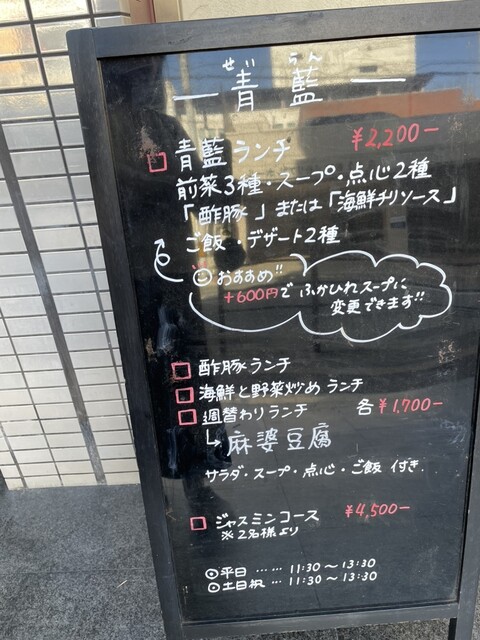 せいらん
— 青藍 —
□ 青藍ランチ ¥2,200-
前菜3種・スープ・点心2種
「酢豚」または「海鮮チリソース」
ご飯・デザート2種
おすすめ!!
+600円で ふかひれスープに
変更できます!!
□ 酢豚ランチ
□ 海鮮と野菜炒め ランチ
□ 週替わりランチ 各 ¥1,700-
↳ 麻婆豆腐
サラダ・スープ・点心・ご飯 付き.
□ ジャスミンコース ¥4,500-
※2名様より
◎平日 …… 11:30〜13:30
◎土日祝… 11:30〜13:30